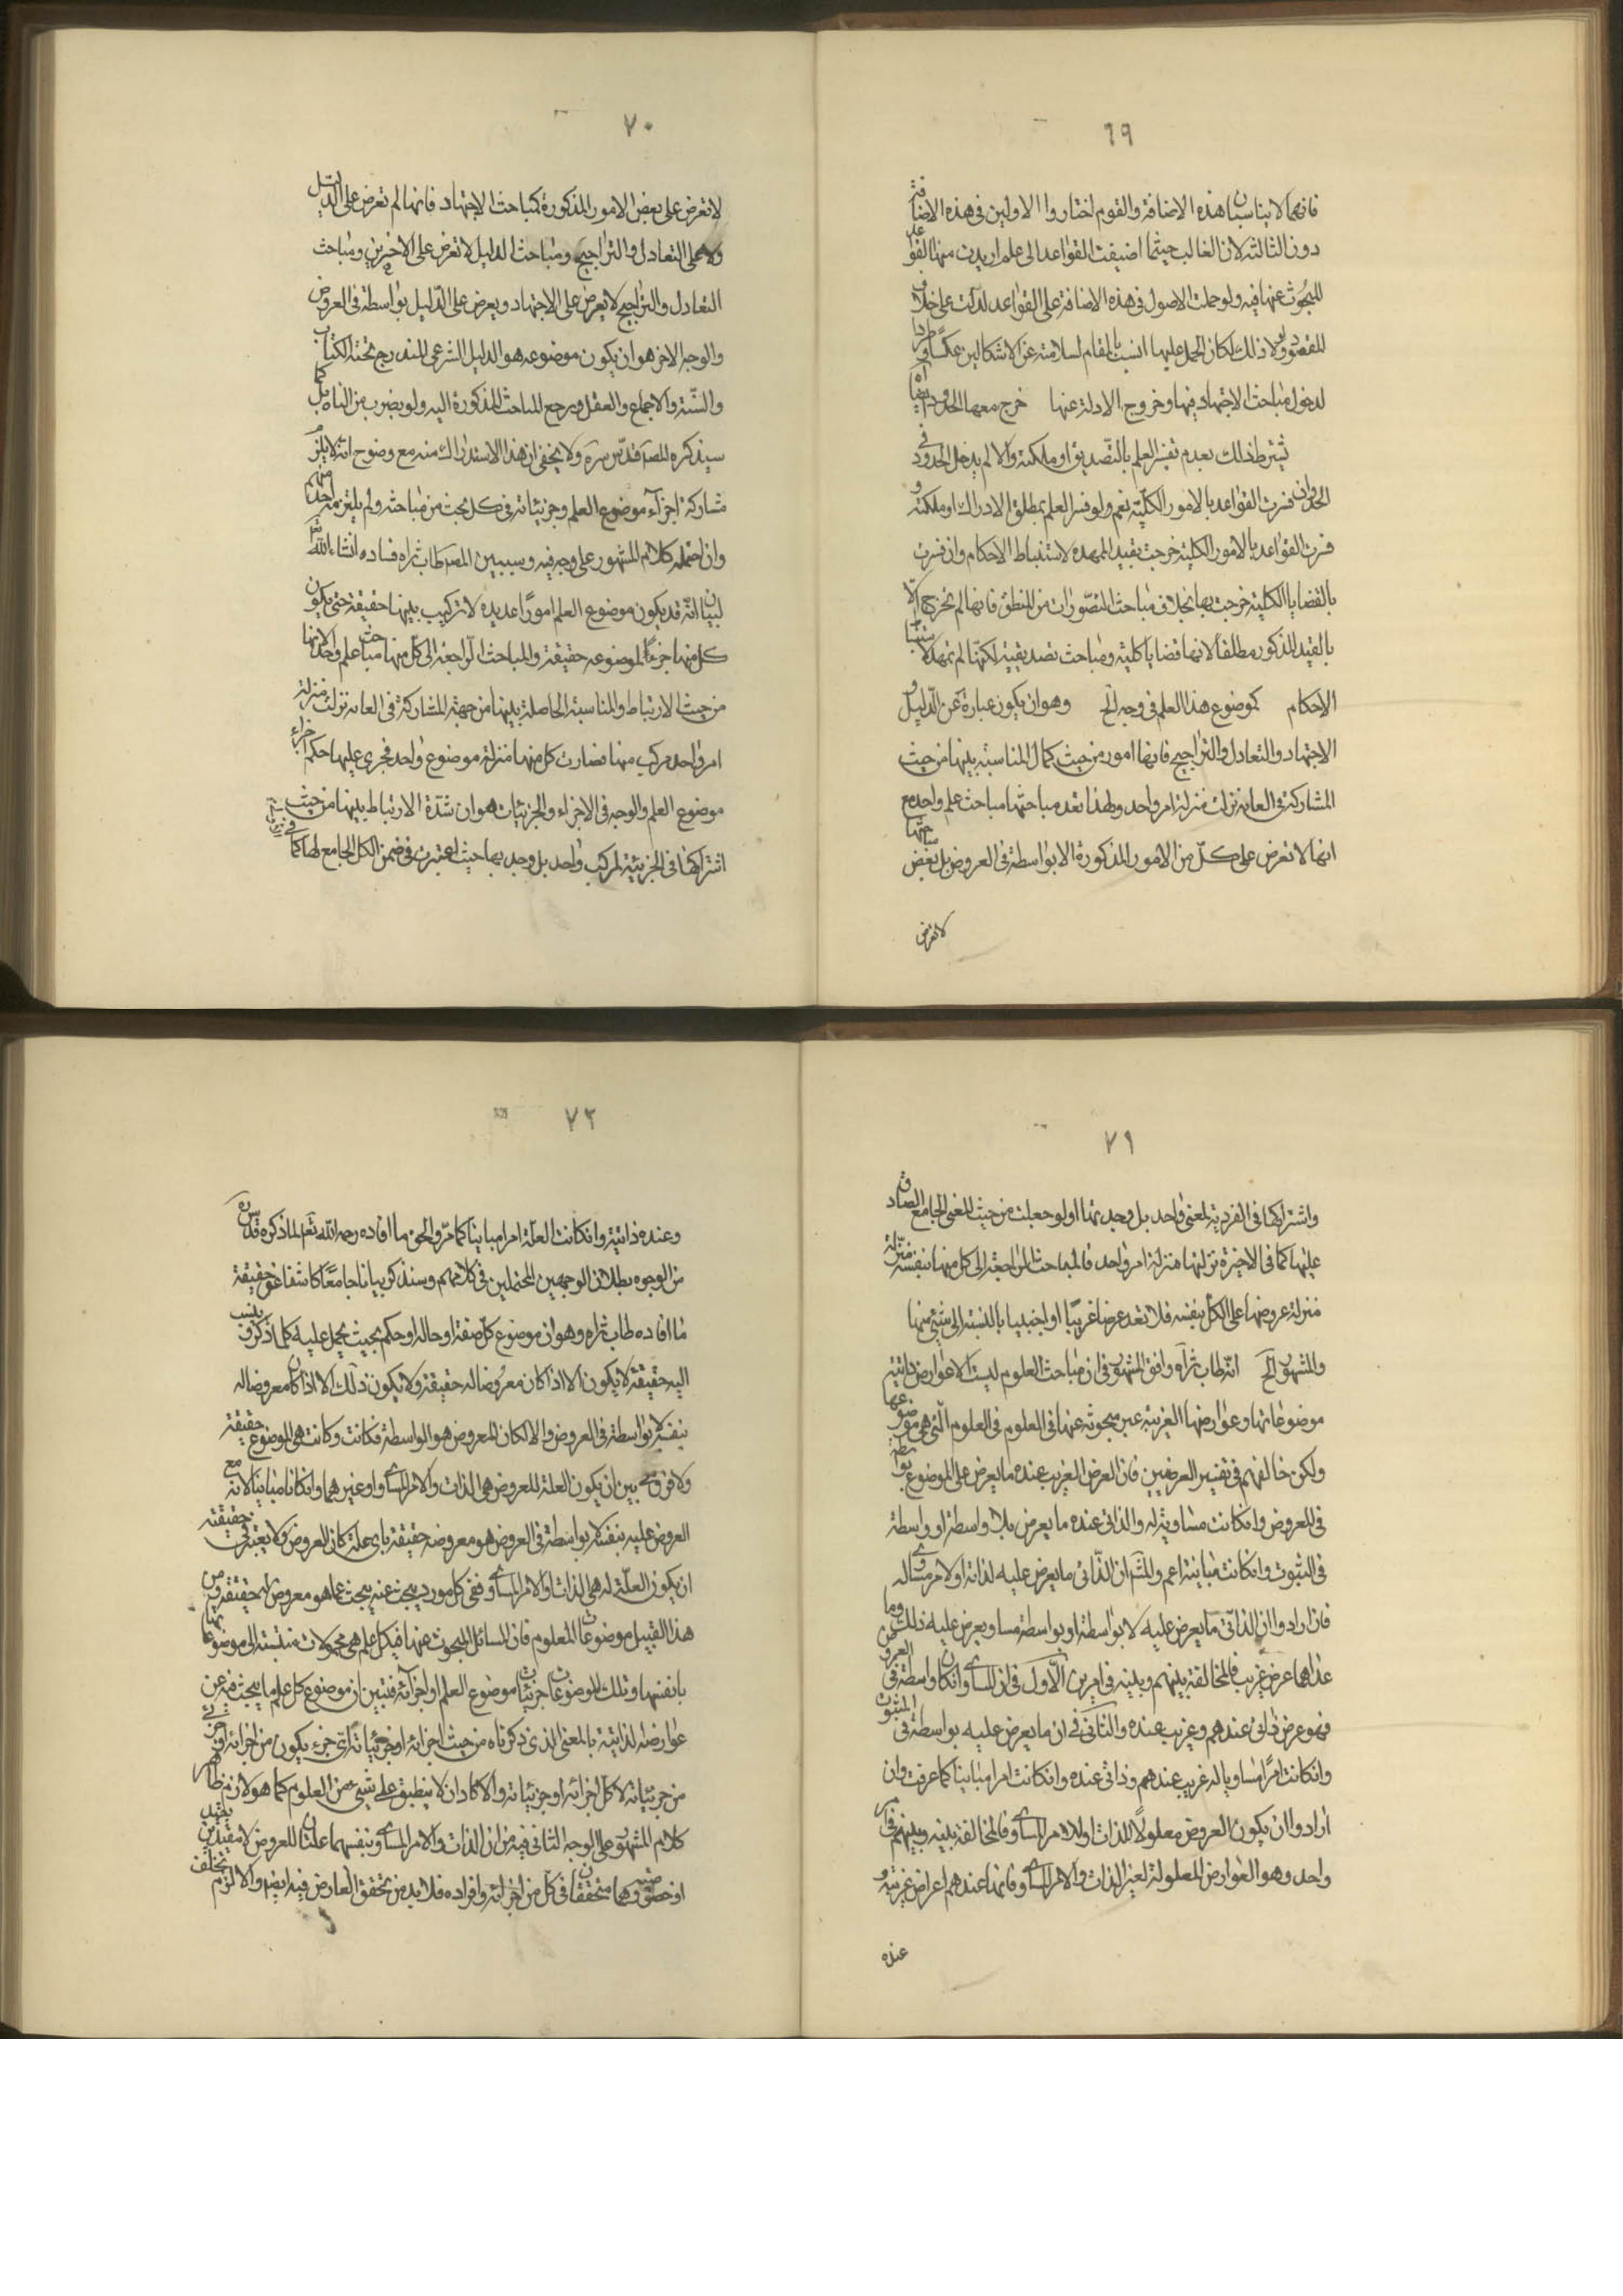 ٦٩
فانهما لا يناسبان هذه الاضافة والقوم اختاروا الاولين في هذه الاضافة
دون الثالثة لان الغالب حيثما اضيفت القواعد الى علم اريدت منها القواعد
المبحوث عنها فيه ولو حملت الاصول في هذه الاضافة على القواعد لدلت على خلاف
المقصود ولو لا ذلك لكان الحمل عليها انسب بالمقام لسلامته عن الاشكالين عكسا وطردا
لدخول مباحث الاجتهاد فيها وخروج الادلة عنها خرج معها الحدود ايضا
يشترط ذلك بعدم تفسير العلم بالتصديق او ملكته والا لم يدخل الحدود في
الحد وان فسرت القواعد بالامور الكلية نعم ولو فسر العلم بمطلق الادراك او ملكته و
فسرت القواعد بالامور الكلية خرجت بقيد الممهدة لاستنباط الاحكام وان فسرت
بالقضايا الكلية خرجت بها بخلاف مباحث التصورات من المنطق فانها لم تخرج الا
بالقيد المذكور مطلقا لانها قضايا كلية ومباحث تصديقية لكنها لم تمهد لاستنباط
الاحكام كموضوع هذا العلم في وجه الخ وهو ان يكون عبارة عن الدليل و
الاجتهاد والتعادل والتراجيح فانها امور من حيث كمال المناسبة بينها من حيث
المشاركة في الغاية نزلت منزلة امر واحد ولهذا تعد مباحثها مباحث علم واحد مع
انها لا تعرض على كل من الامور المذكورة الا بواسطة في العروض بل بعض مباحثها
لا تعرض
٧٠
لا تعرض على بعض الامور المذكورة كمباحث الاجتهاد فانها لم تعرض على الدليل
ولا على التعادل والتراجيح ومباحث الدليل لا تعرض على الاخيرين ومباحث
التعادل والتراجيح لا يعرض على الاجتهاد ويعرض على الدليل بواسطة في العروض
والوجه الاخر هو ان يكون موضوعه هو الدليل الشرعي المندرج تحته الكتاب
والسنة والاجماع والعقل ويرجع المباحث المذكورة اليه ولو بضرب من التاويل كما
سيذكره المص قدس سره ولا يخفى ان هذا الاستدراك منه مع وضوح انه لا يلزم
مشاركة اجزاء موضوع العلم وجزئياته في كل مبحث من مباحثه ولم يلتزمه احد منهم
وان احتمله كلامهم المشهور على وجه فيه وسيبين المص طاب ثراه فساده انشاء الله تعالى
لبيان انه قد يكون موضوع العلم امورا عديدة لا تركيب بينها حقيقة حتى يكون
كل منها جزءا لموضوعه حقيقة والمباحث الراجعة الى كل منها مباحث علم واحد لانها
من حيث الارتباط والمناسبة الحاصلة بينها من جهة المشاركة في الغاية نزلت منزلة
امر واحد مركب منها فصارت كل منها منزلة موضوع واحد فجرى عليها حكم اجزاء
موضوع العلم والوجه في الاجزاء والجزئيات هو ان شدة الارتباط بينها من حيث
اشتراكها في الجزئية لمركب واحد بل وجد بها حيث اعتبرت في ضمن الكل الجامع لها كما في
٧١
واشتراكها في الفردية لمعنى واحد بل وجد بها او لو جعلت من حيث المعنى الجامع الصادق
عليها كما في الاخيرة نزلتها منزلة امر واحد فالمباحث الراجعة الى كل منها بنفسه منزلة
منزلة عروضها على الكل بنفسه فلا تعد عرضا غريبا او اجنبيا بالنسبة الى شيء منها
والمشهور الخ انه طاب ثراه وافق المشهور في ان مباحث العلوم ليست الا عوارض ذاتية
موضوعاتها وعوارضها الغريبة غير مبحوثة عنها في العلوم في العلوم التي هي موضوعها
ولكن خالفهم في تفسير العرضين فان العرض الغريب عنده ما يعرض على الموضوع بواسطة
في العروض وان كانت مساوية له والذاتي عنده ما يعرض بلا واسطة او واسطة
في الثبوت وان كانت مباينة اعم والمشهور ان الذاتي ما يعرض عليه لذاته او لامر مساو له
فان ارادوا ان الذاتي ما يعرض عليه لا بواسطة او بواسطة مساو يعرض عليه ذلك وما
عداهما عرض غريب فالمخالفة بينهم وبينه في امرين الاول في ان المساوي ان كان واسطة في العروض
فهو عرض ذاتي عندهم وغريب عنده والثاني في ان ما يعرض عليه بواسطة في الثبوت
وان كانت امرا مساويا له غريب عندهم وذاتي عنده وان كانت امرا مباينا كما عرفت وان
ارادوا ان يكون العروض معلولا للذات او للامر المساوي فالمخالفة بينه وبينهم في امر
واحد وهو العوارض المعلولة لغير الذات والامر المساوي فانها عندهم اعراض غريبة و
عنده
٧٢
وعنده ذاتية وان كانت العلة امرا مباينا كما مر والحق ما افاده رحمه الله تعالى لما ذكره قدس سره
من الوجوه بطلان الوجهين المحتملين في كلامهم وسنذكر بيانا جامعا كاشفا عن حقيقة
ما افاده طاب ثراه وهو ان موضوع كل صفة او حالة او حكم بحيث يحمل عليه كلما ذكر وينسب
اليه حقيقة لا يكون الا اذا كان معروضا له حقيقة ولا يكون ذلك الا اذا كان معروضا له
بنفسه لا بواسطة في العروض والا لكان المعروض هو الواسطة فكانت وكانت هي الموضوع حقيقة
ولا فرق ح بين ان يكون العلة للعروض هي الذات والامر المساوي او غيرهما وان كانا مباينا لانه مع
العروض عليه بنفسه لا بواسطة في العروض هو معروضه حقيقة باي علة كان العروض ولا يعتبر في حقيقته
ان يكون العلة له هي الذات او الامر المساوي ففي كل مورد يبحث عنه يبحث عما هو معروض له حقيقة ومن
هذا القبيل موضوعات العلوم فان المسائل المبحوث عنها في كل علم هي محمولات منتسبة الى موضوعاتها
بانفسها وتلك الموضوعات جزئيات موضوع العلم او اجزائه فتبين ان موضوع كل علم ما يبحث فيه عن
عوارضه الذاتية بالمعنى الذي ذكرناه من حيث اجزائه او جزئياته اي جزء يكون من اجزائه او جزئي
من جزئياته لا كل اجزائه او جزئياته والا كاد ان لا ينطبق على شيء من العلوم كما هو لازم ظاهر
كلام المشهور على الوجه الثاني فيه من ان الذات والامر المساوي بنفسهما علتان للعروض لا مقيدين بقيد
او خصوصية وهما متحققان في كل من اجزائه وافراده فلا بد من تحقق العارض فيه ايضا والا لزم تخلف